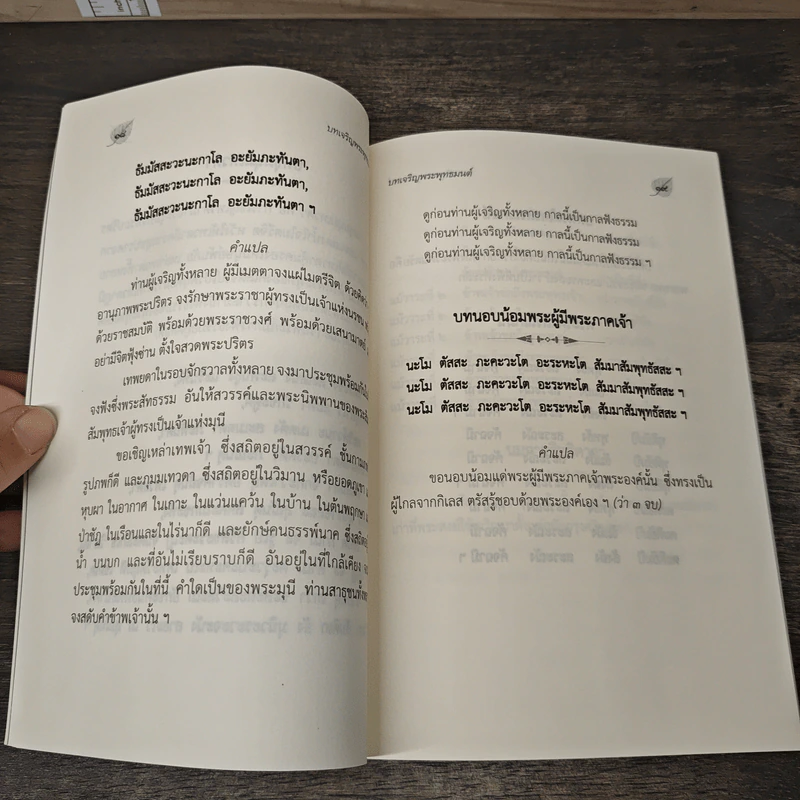 ๑๘
บทเจริญพระพุทธ
ธัมมัสสะวะนะกาโล อะยัมภะทันตา,
ธัมมัสสะวะนะกาโล อะยัมภะทันตา,
ธัมมัสสะวะนะกาโล อะยัมภะทันตา ฯ
คำแปล
ท่านผู้เจริญทั้งหลาย ผู้มีเมตตาจงแผ่ไมตรีจิต ด้วยคิดว่า
อานุภาพพระปริตร จงรักษาพระราชาผู้ทรงเป็นเจ้าแห่งนรชน
ด้วยราชสมบัติ พร้อมด้วยพระราชวงศ์ พร้อมด้วยเสนามาตย์
อย่ามีจิตฟุ้งซ่าน ตั้งใจสวดพระปริตร
เทพยดาในรอบจักรวาลทั้งหลาย จงมาประชุมพร้อมกัน
จงฟังซึ่งพระสัทธรรม อันให้สวรรค์และพระนิพพานของพระ
สัมพุทธเจ้าผู้ทรงเป็นเจ้าแห่งมุนี
ขอเชิญเหล่าเทพเจ้า ซึ่งสถิตอยู่ในสวรรค์ ชั้นกาม
รูปภพก็ดี และภุมมเทวดา ซึ่งสถิตอยู่ในวิมาน หรือยอดภูเขา
หุบผา ในอากาศ ในเกาะ ในแว่นแคว้น ในบ้าน ในต้นพฤกษา
ป่าชัฏ ในเรือนและในไร่นาก็ดี และยักษ์คนธรรพ์นาค ซึ่งสถิต
น้ำ บนบก และที่อันไม่เรียบราบก็ดี อันอยู่ในที่ใกล้เคียง
ประชุมพร้อมกันในที่นี้ คำใดเป็นของพระมุนี ท่านสาธุชนทั้ง
จงสดับคำข้าพเจ้านั้น ฯ
บทเจริญพระพุทธมนต์
๑๙
ดูก่อนท่านผู้เจริญทั้งหลาย กาลนี้เป็นกาลฟังธรรม
ดูก่อนท่านผู้เจริญทั้งหลาย กาลนี้เป็นกาลฟังธรรม
ดูก่อนท่านผู้เจริญทั้งหลาย กาลนี้เป็นกาลฟังธรรม ฯ
บทนอบน้อมพระผู้มีพระภาคเจ้า
นะโม ตัสสะ ภะคะวะโต อะระหะโต สัมมาสัมพุทธัสสะ ฯ
นะโม ตัสสะ ภะคะวะโต อะระหะโต สัมมาสัมพุทธัสสะ ฯ
นะโม ตัสสะ ภะคะวะโต อะระหะโต สัมมาสัมพุทธัสสะ ฯ
คำแปล
ขอนอบน้อมแด่พระผู้มีพระภาคเจ้าพระองค์นั้น ซึ่งทรงเป็น
ผู้ไกลจากกิเลส ตรัสรู้ชอบด้วยพระองค์เอง ฯ (ว่า ๓ จบ)